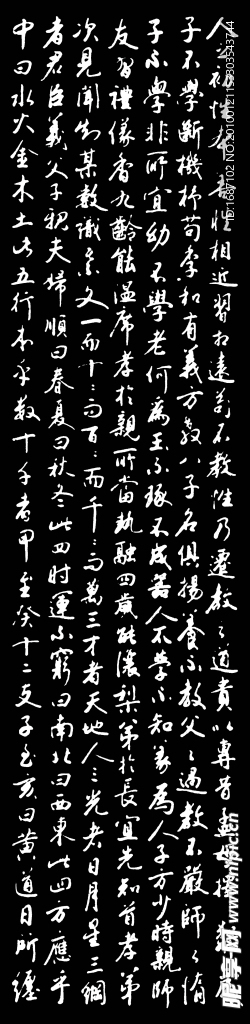 人之初性本善性相近習相遠苟不教性乃遷教之道貴以專昔孟母擇鄰處
子不學斷機杼荀季和有義方教八子名俱揚養不教父之過教不嚴師之惰
子不學非所宜幼不學老何為玉不琢不成器人不學不知義為人子方少時親師
友習禮儀香九齡能溫席孝於親所當執融四歲能讓梨弟於長宜先知首孝弟
次見聞知某數識某文一而十〻而百〻而千〻而萬三才者天地人三光者日月星三綱
者君臣義父子親夫婦順曰春夏曰秋冬此四時運不窮曰南北曰西東此四方應乎
中曰水火金木土此五行本乎數十干者甲至癸十二支子至亥曰黃道日所躔
昵享网 www.nipic.cn